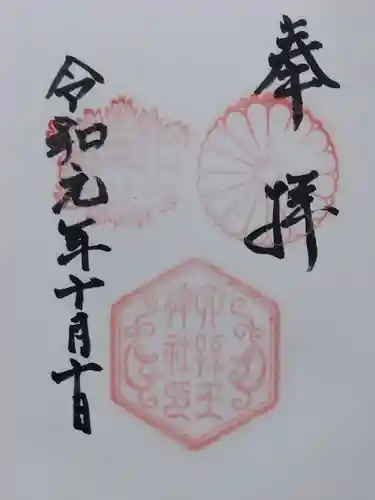 奉拝
令和元年十月十日